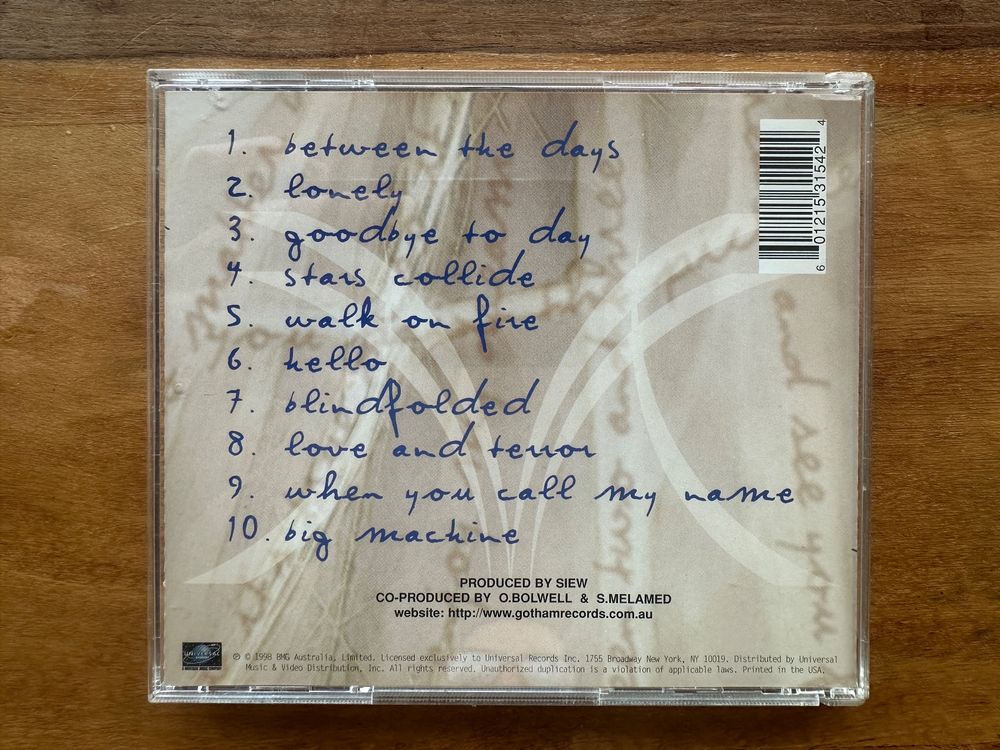 1. between the days
2. lonely
3. goodbye to day
4. stars collide
5. walk on fire
6. hello
7. blindfolded
8. love and terror
9. when you call my name
10. big machine
6 01215 31542 4
and see you
PRODUCED BY SIEW
CO-PRODUCED BY O.BOLWELL & S.MELAMED
website: http://www.gothamrecords.com.au
universal
℗ © 1998 BMG Australia, Limited. Licensed exclusively to Universal Records Inc. 1755 Broadway New York, NY 10019. Distributed by Universal
Music & Video Distribution, Inc. All rights reserved. Unauthorized duplication is a violation of applicable laws. Printed in the USA.